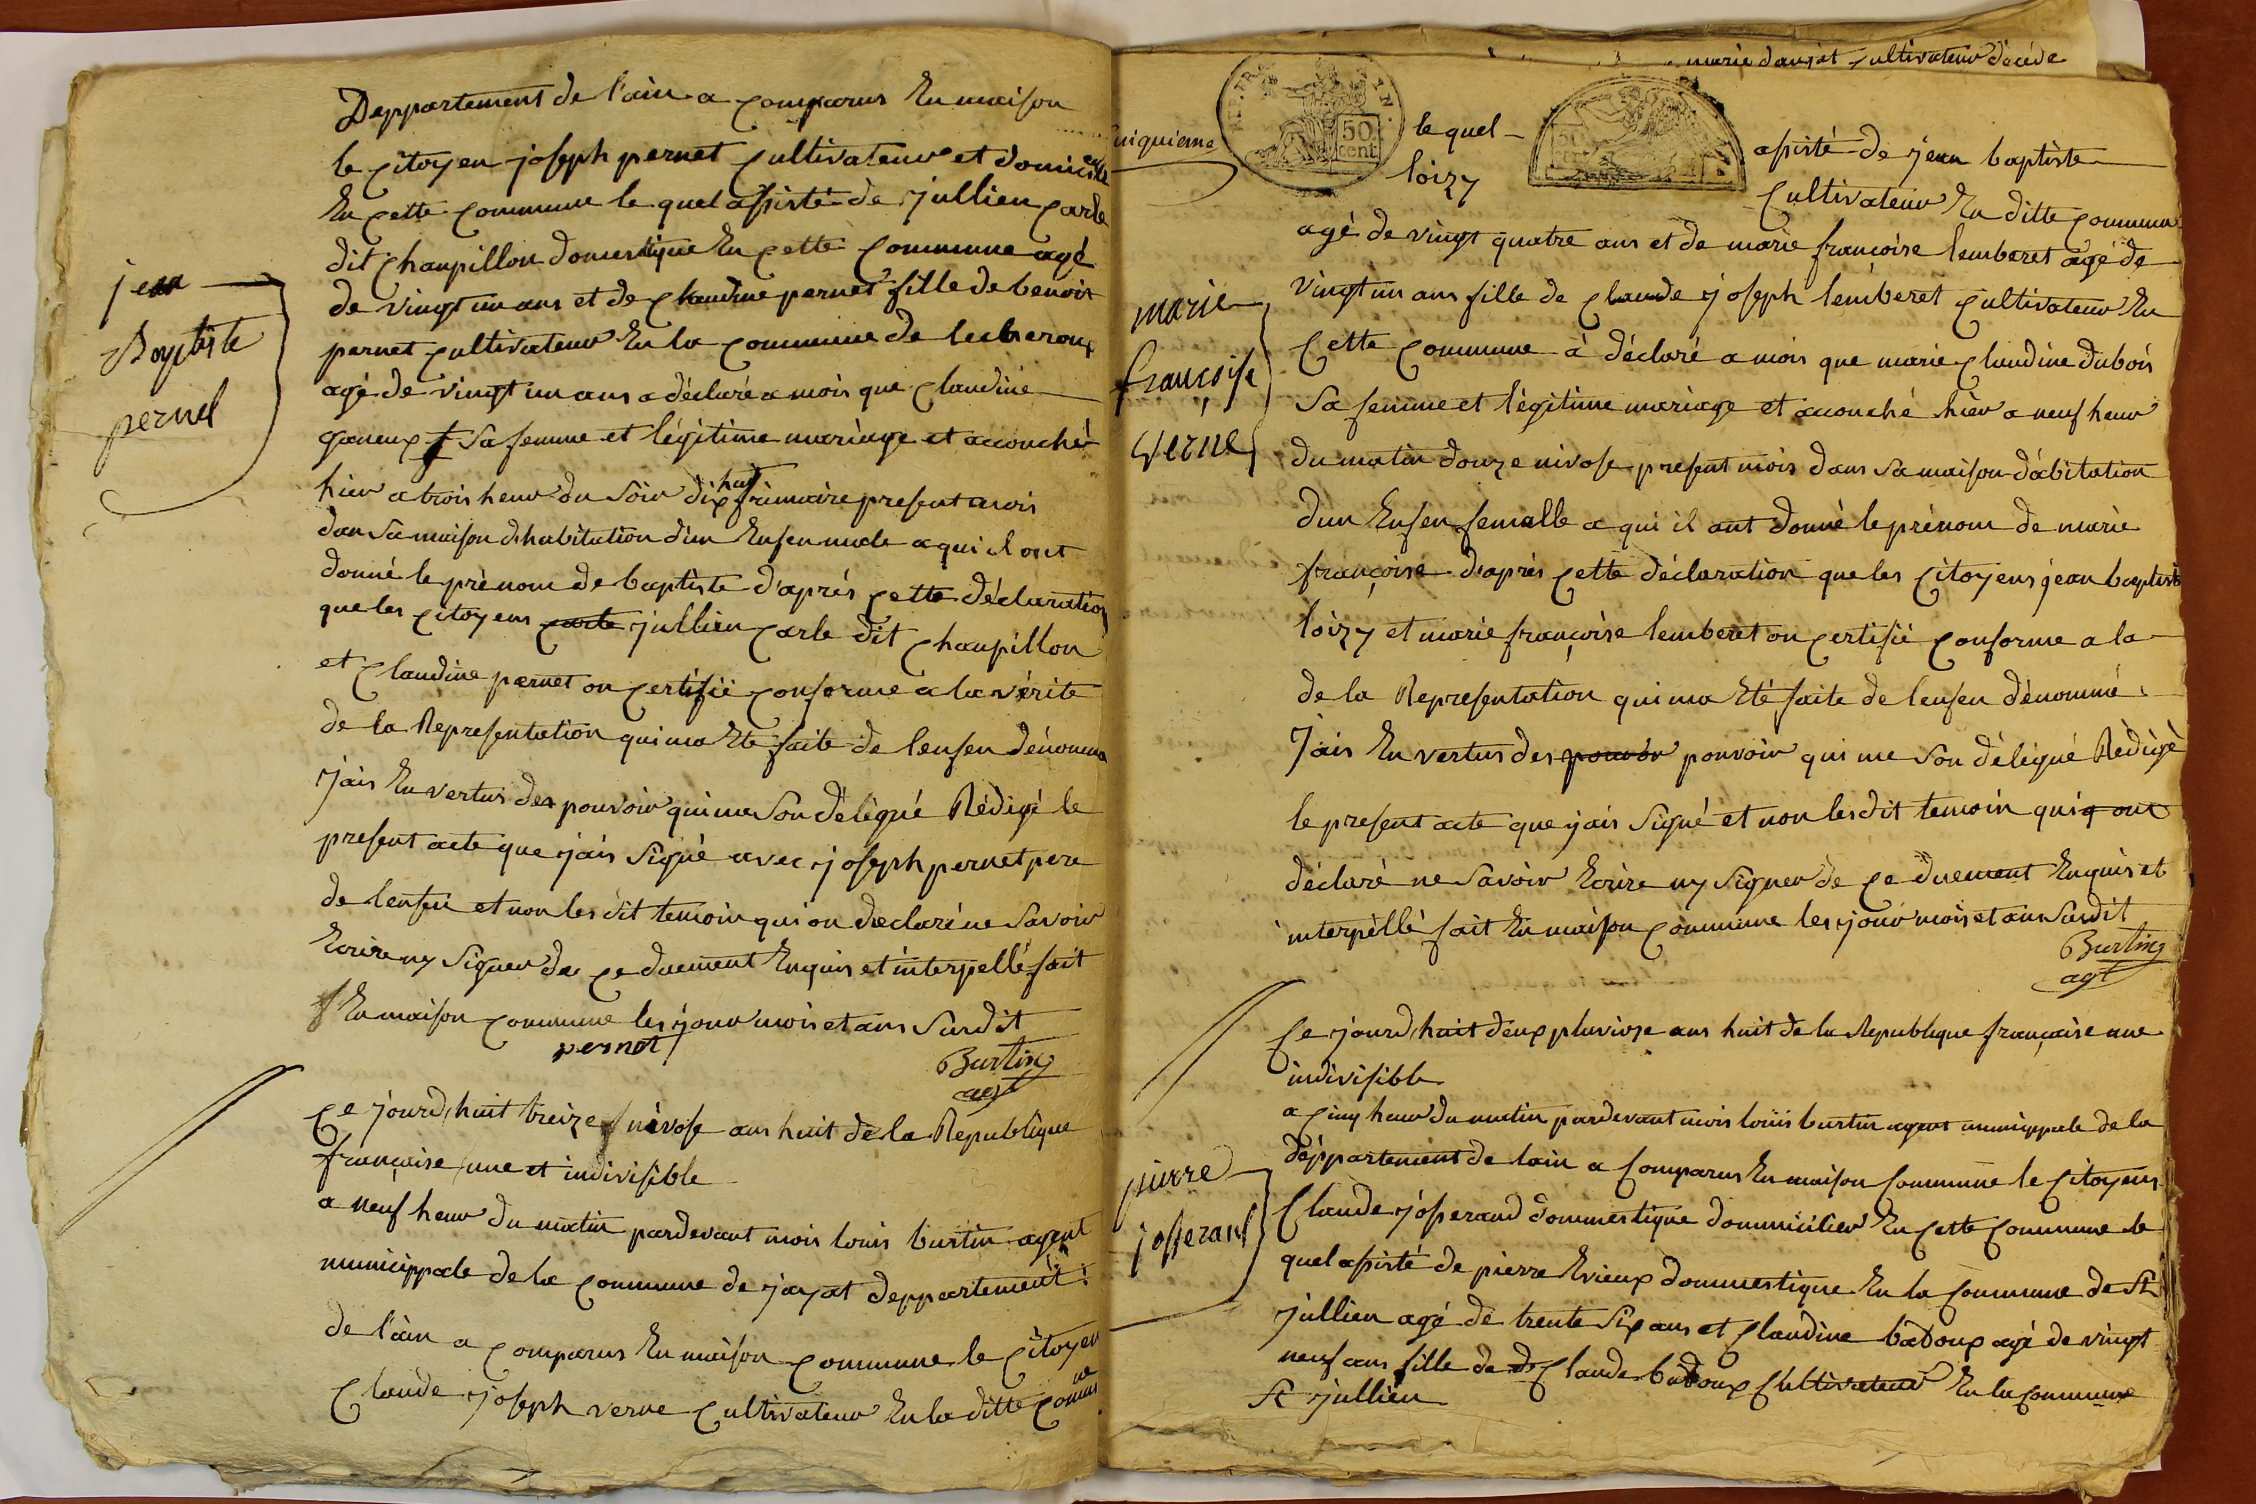 Deppartement de l'ain a comparus En maison
le citoyen joseph pernet cultivateur et domicilié
En cette commune le quel assisté de jullien carle
dit chaupillon domestique En cette commune agé
de vingt un ans et de claudine pernet fille de benoit
pernet cultivateur En la commune de lecheroux
agé de vingt un ans a déclaré a mois que claudine
sa femme et légitime mariage et accouché
hier a trois heur du soir dix huit frimaire present mois
dan sa maison d'habitation d'un Enfen male a qui il ont
donné le prénom de baptiste d'aprés cette déclaration
que les citoyens carle jullien carle dit chaupillon
et claudine pernet on certifié conforme a la vérité
de la Representation qui ma Eté faite de lenfen dénommé
jais En vertus des pouvoir qui me son délégué Rédigé le
present acte que jais signé avec joseph pernet pere
de lenfen et non les dit temoin qui on declaré ne savoir
Ecrire ny signer de ce duement Enquis et interpellé fait
En maison commune les jour mois et ans susdit
pernet
Burtin
agt
jean
Baptiste
pernet
Ce jourd'huit treize nivose ans huit de la Republique
française une et indivisible
a neuf heur du matin pardevant mois louis burtin agent
municippale de la commune de jayat deppartement
de l'ain a comparus En maison commune le citoyen
Claude joseph verne cultivateur En la ditte commune
marie danset cultivateur décédé
cinquieme
REP. FRA
50
cent
le quel assisté de jean baptiste
loizy Cultivateur En ditte commune
agé de vingt quatre ans et de marie françoise lemberet agé de
vingt un ans fille de claude joseph lemberet cultivateur En
Cette commune à déclaré a mois que marie claudine dubois
sa femme et légitime mariage et accouché hier a neuf heur
du matin douze nivose present mois dans sa maison d'abitation
dun Enfen femalle a qui il ont donné le prénom de marie
françoise d'aprés cette déclaration que les citoyens jean baptiste
loizy et marie françoise lemberet on certifié conforme a la
de la Representation qui ma Eté faite de lenfen dénommé
jais En vertus des pouvoir pouvoir qui me son délégué Rédigé
le present acte que jais signé et non les dit temoin qui ont
déclaré ne savoir Ecrire ny signer de ce duement Enquis et
interpéllé fait En maison commune les jour mois et ans susdit
Burtin
agt
marie
françoise
verne
Ce jourd'huit deux pluviose ans huit de la Republique française une
indivisible
a cinq heur du matin pardevant mois louis burtin agent municippale de la
déppartement de lain a Comparus En maison Commune le Citoyens
Claude josserand dommestique dommicilier En cette commune le
quel assisté de pierre Evieux dommestique En la Commune de St
jullien agé de trente six ans et claudine badoux agé de vingt
neuf ans fille de claude badoux Cultivateur En la Commune
St jullien
pierre
josserand